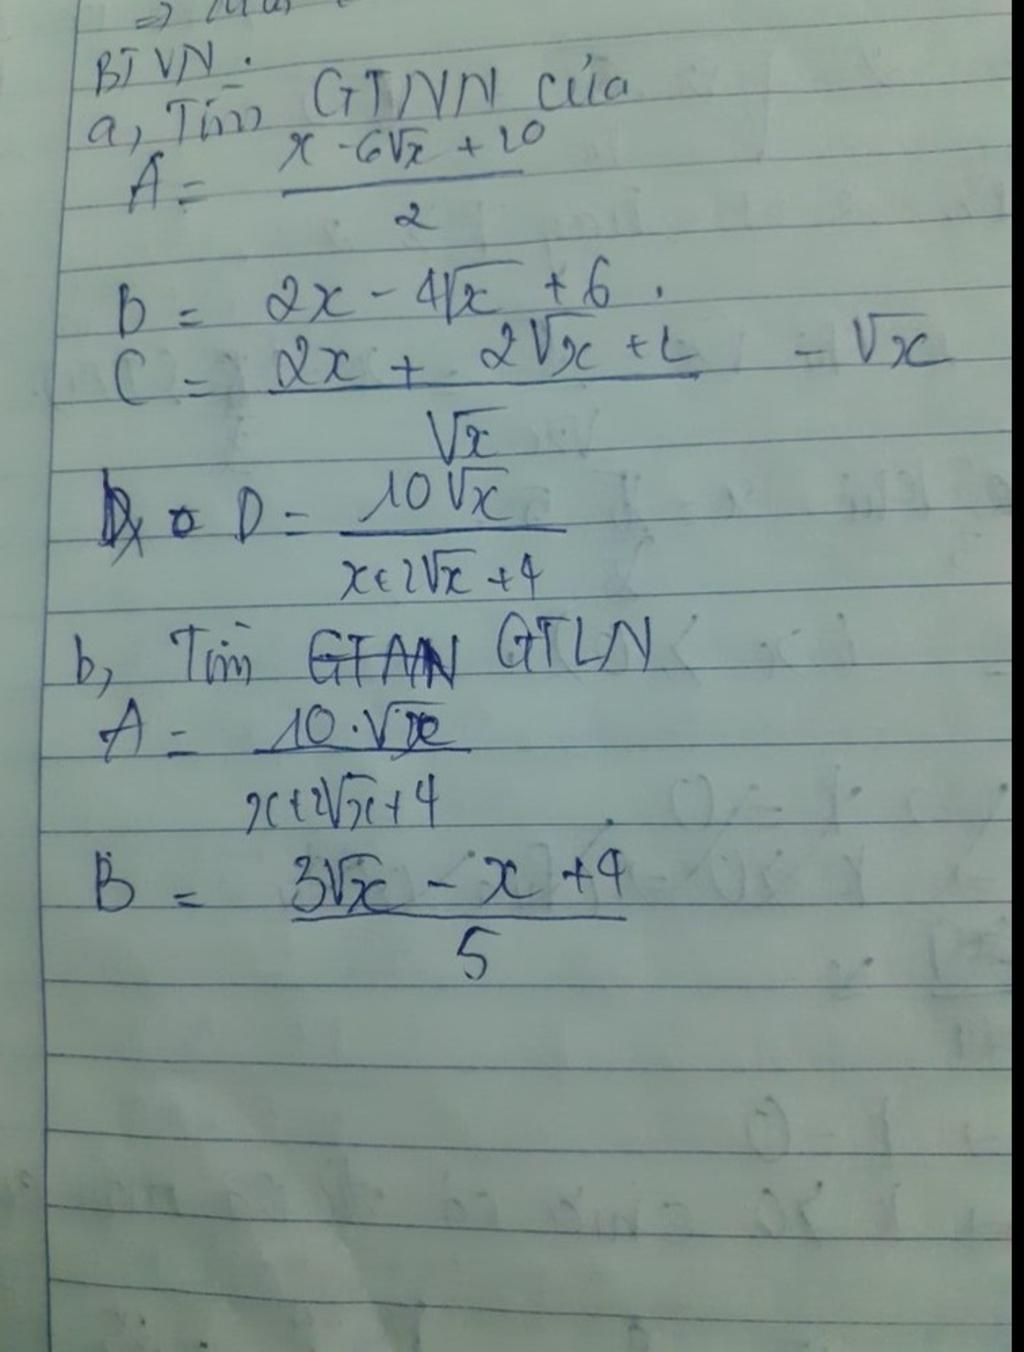 BTVN.
a, Tìm GTNN của
A = \frac{x - 6\sqrt{x} + 10}{2}
B = 2x - 4\sqrt{x} + 6.
C = \frac{2x + 2\sqrt{x} + 1}{\sqrt{x}} - \sqrt{x}
D = \frac{10\sqrt{x}}{x + 2\sqrt{x} + 4}
b, Tìm GTLN
A = \frac{10.\sqrt{x}}{x + 2\sqrt{x} + 4}
B = \frac{3\sqrt{x} - x + 4}{5}